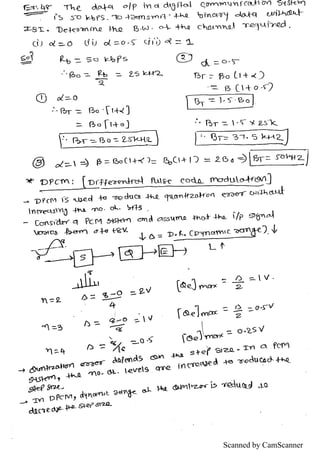 Ex: The data o/p in a digital communication system
is 50 kbps. To transmit the binary data without
ISI. Determine the B.W. of the channel required.
(i) α=0 (ii) α=0.5 (iii) α=1
Sol: Rb = 50 kbps
∴ Bo = Rb/2 = 25 kHz
① α=0
BT = Bo[1+α]
= Bo[1+0]
∴ BT = Bo = 25kHz
② α=0.5
BT = Bo(1+α)
= B(1+0.5)
BT = 1.5 Bo
∴ BT = 1.5 x 25k
∴ BT = 37.5 kHz
③ α=1 ⇒ B = Bo(1+α) = Bo(1+1) = 2Bo ⇒ BT = 50kHz
* DPCM: [Differential Pulse code modulation]
- DPCM is used to reduce the quantization error without
increasing the no. of bits.
- Consider a PCM system and assume that the i/p signal
varies from 0 to +8V.
↓Δ = D.R. (Dynamic range)↓
L↑
S Q E
n=2 Δ = 8-0/4 = 2V [Qe]max = Δ/2 = 1V.
n=3 Δ = 8-0/8 = 1V [Qe]max = Δ/2 = 0.5V
n=4 Δ = 8/16 = 0.5 [Qe]max = 0.25V
→ Quantization error depends on the step size. In a PCM
system, the no. of levels are increased to reduced the
step size.
→ In DPCM, dynamic range of the quantizer is reduced to
decrease the step size.
Scanned by CamScanner